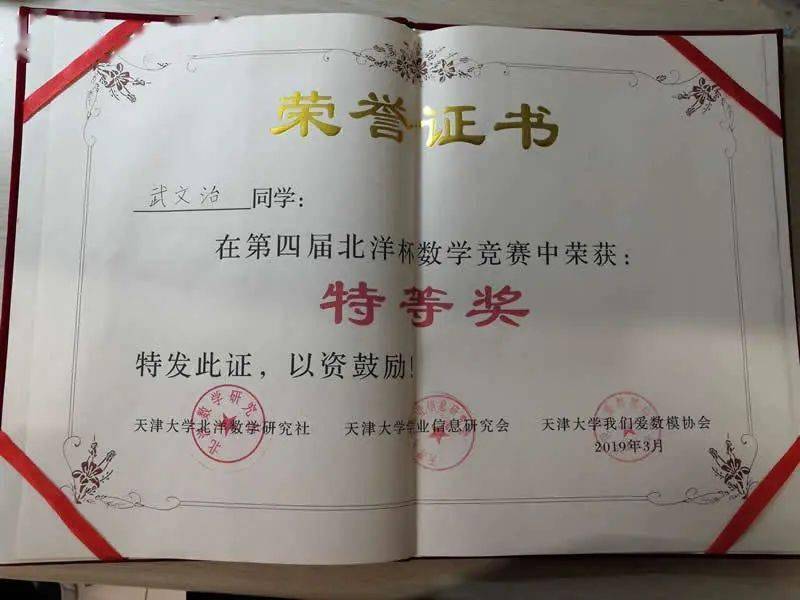 荣誉证书
武文治 同学:
在第四届北洋杯数学竞赛中荣获:
特等奖
特发此证，以资鼓励!
天津大学北洋数学研究社 天津大学学业信息研究会 天津大学我们爱数模协会
2019年3月
北洋数学研究